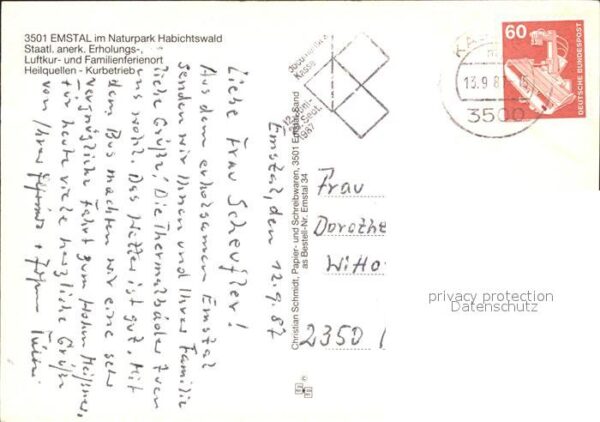 3501 EMSTAL im Naturpark Habichtswald
Staatl. anerk. Erholungs-,
Luftkur- und Familienferienort
Heilquellen - Kurbetrieb
Emstal, den 12.9.87
Liebe Frau Scheufler!
Aus dem erholsamen Emstal
senden wir Ihnen und Ihrer Familie
liebe Grüße. Die Thermalbäder tuen
uns wohl. Das Wetter ist gut. Mit
dem Bus machten wir eine sehr
vergnügliche Fahrt zum Hohen Meißner.
Für heute viele herzliche Grüße
von Ihren
Christian Schmidt, Papier- und Schreibwaren, 3501 Emstal-Sand
as Bestell-Nr. Emstal 34
Kassel
12. Juni-
20. Sept.
1987
13.9.8
3500
60
DEUTSCHE BUNDESPOST
Frau
Dorothe
Witto
2350
privacy protection
Datenschutz